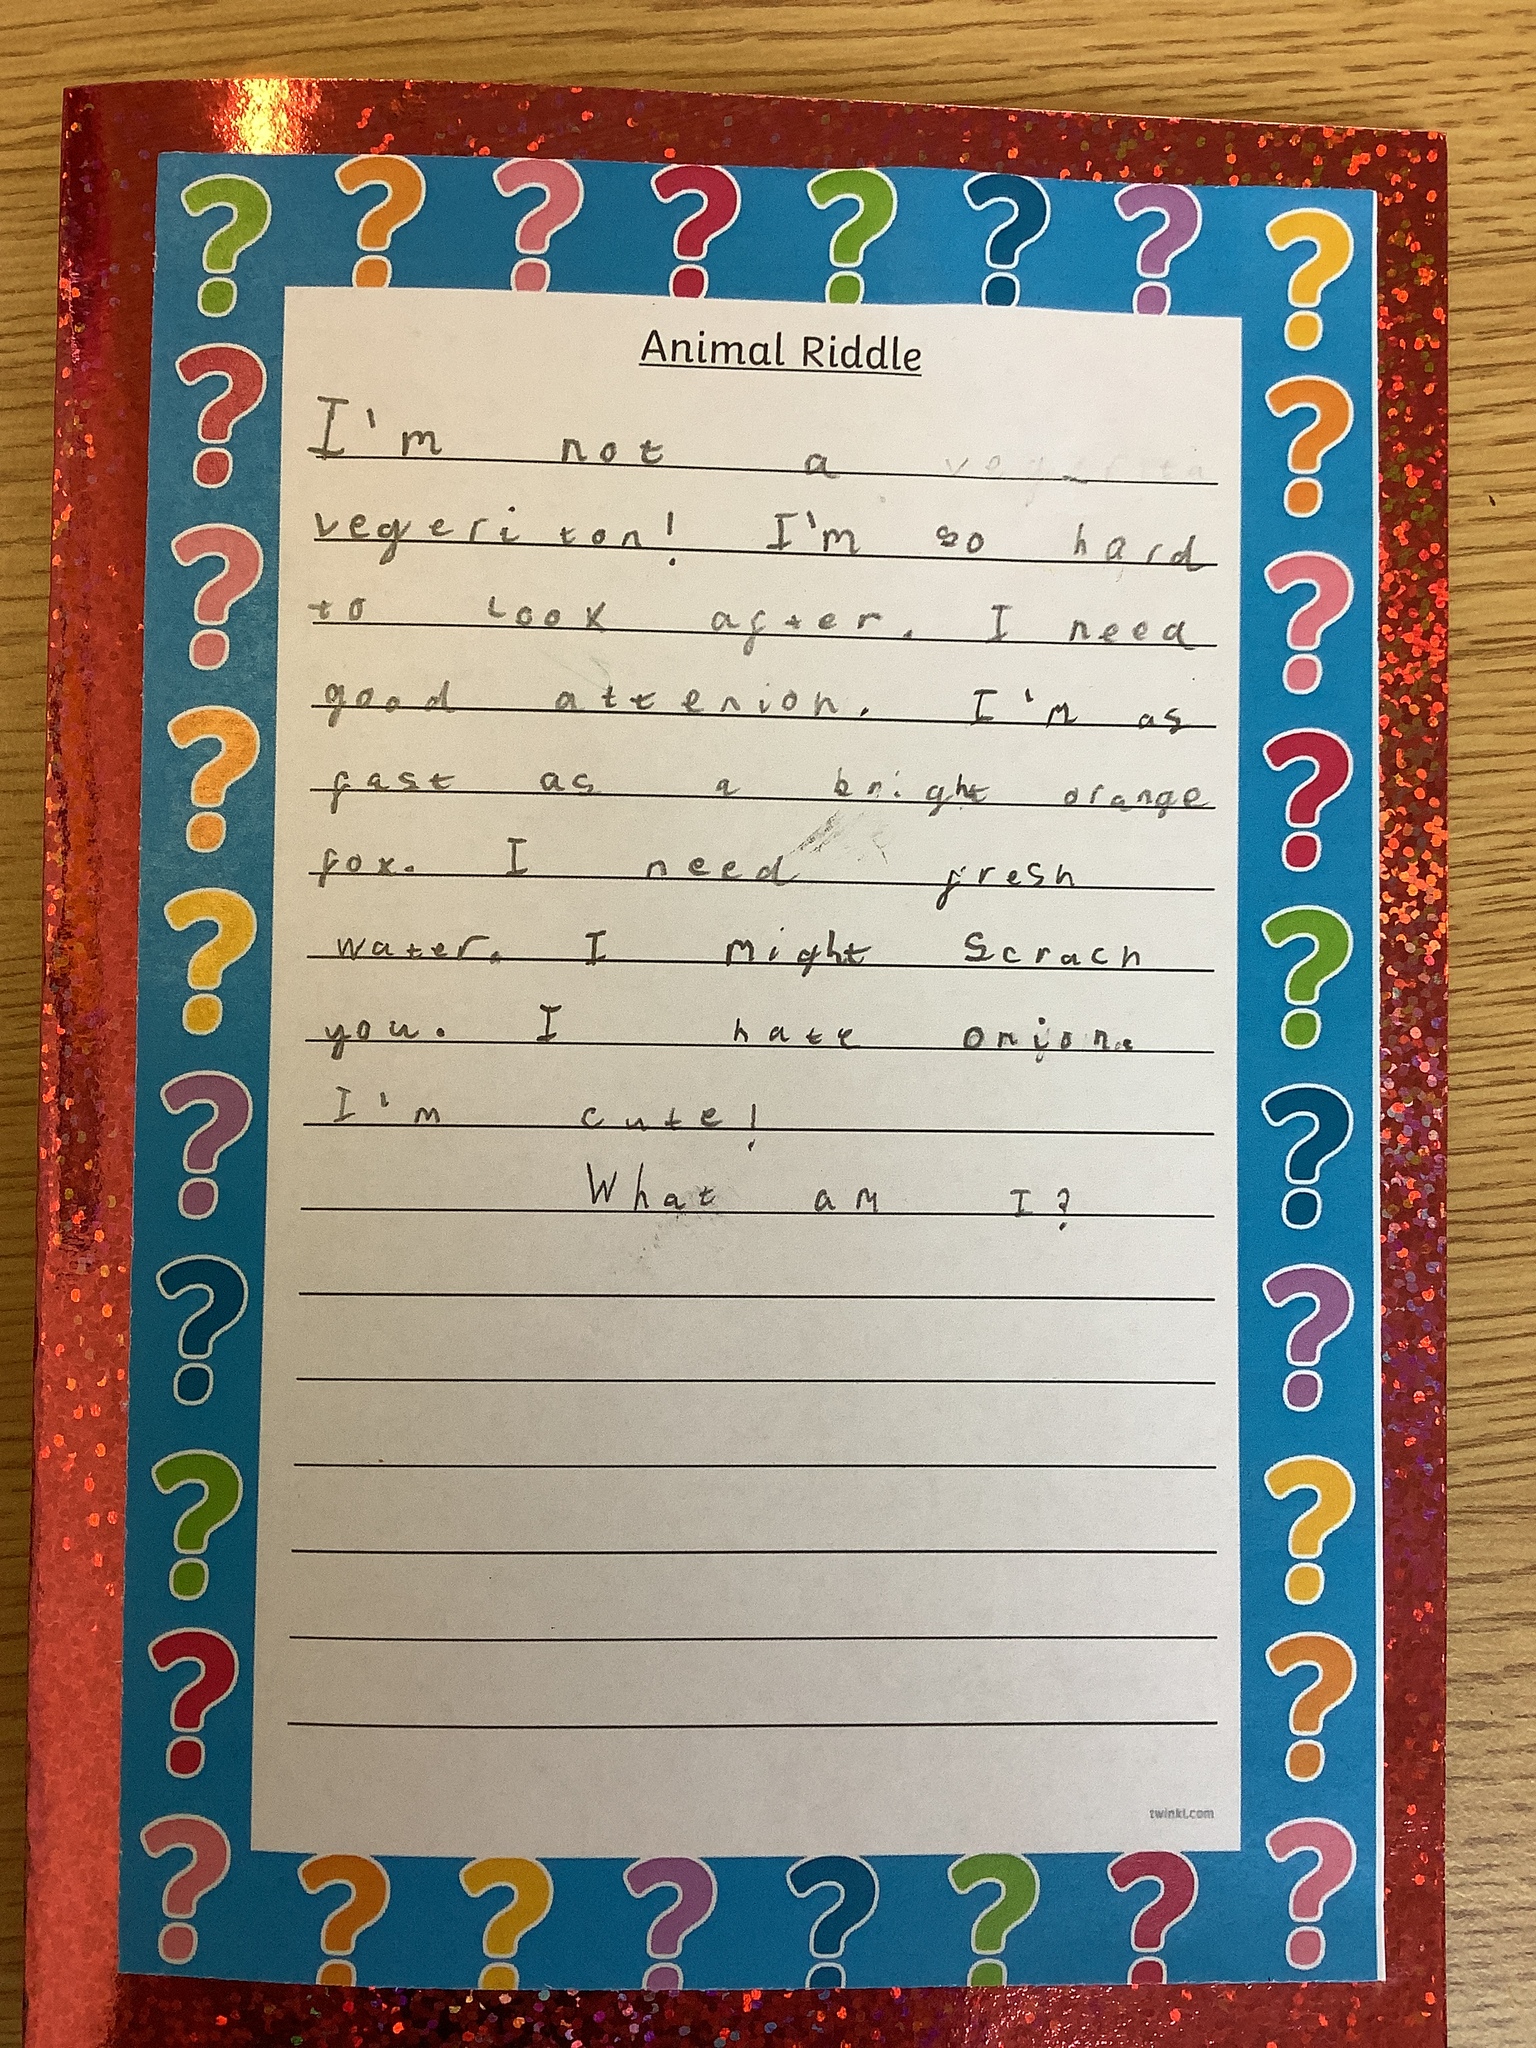 Animal Riddle
I'm not a
vegeriton! I'm so hard
to look after. I need
good attenion. I'm as
fast as a bright orange
fox. I need fresh
water. I might Scrach
you. I hate onion.
I'm cute!
What am I?
twinkl.com